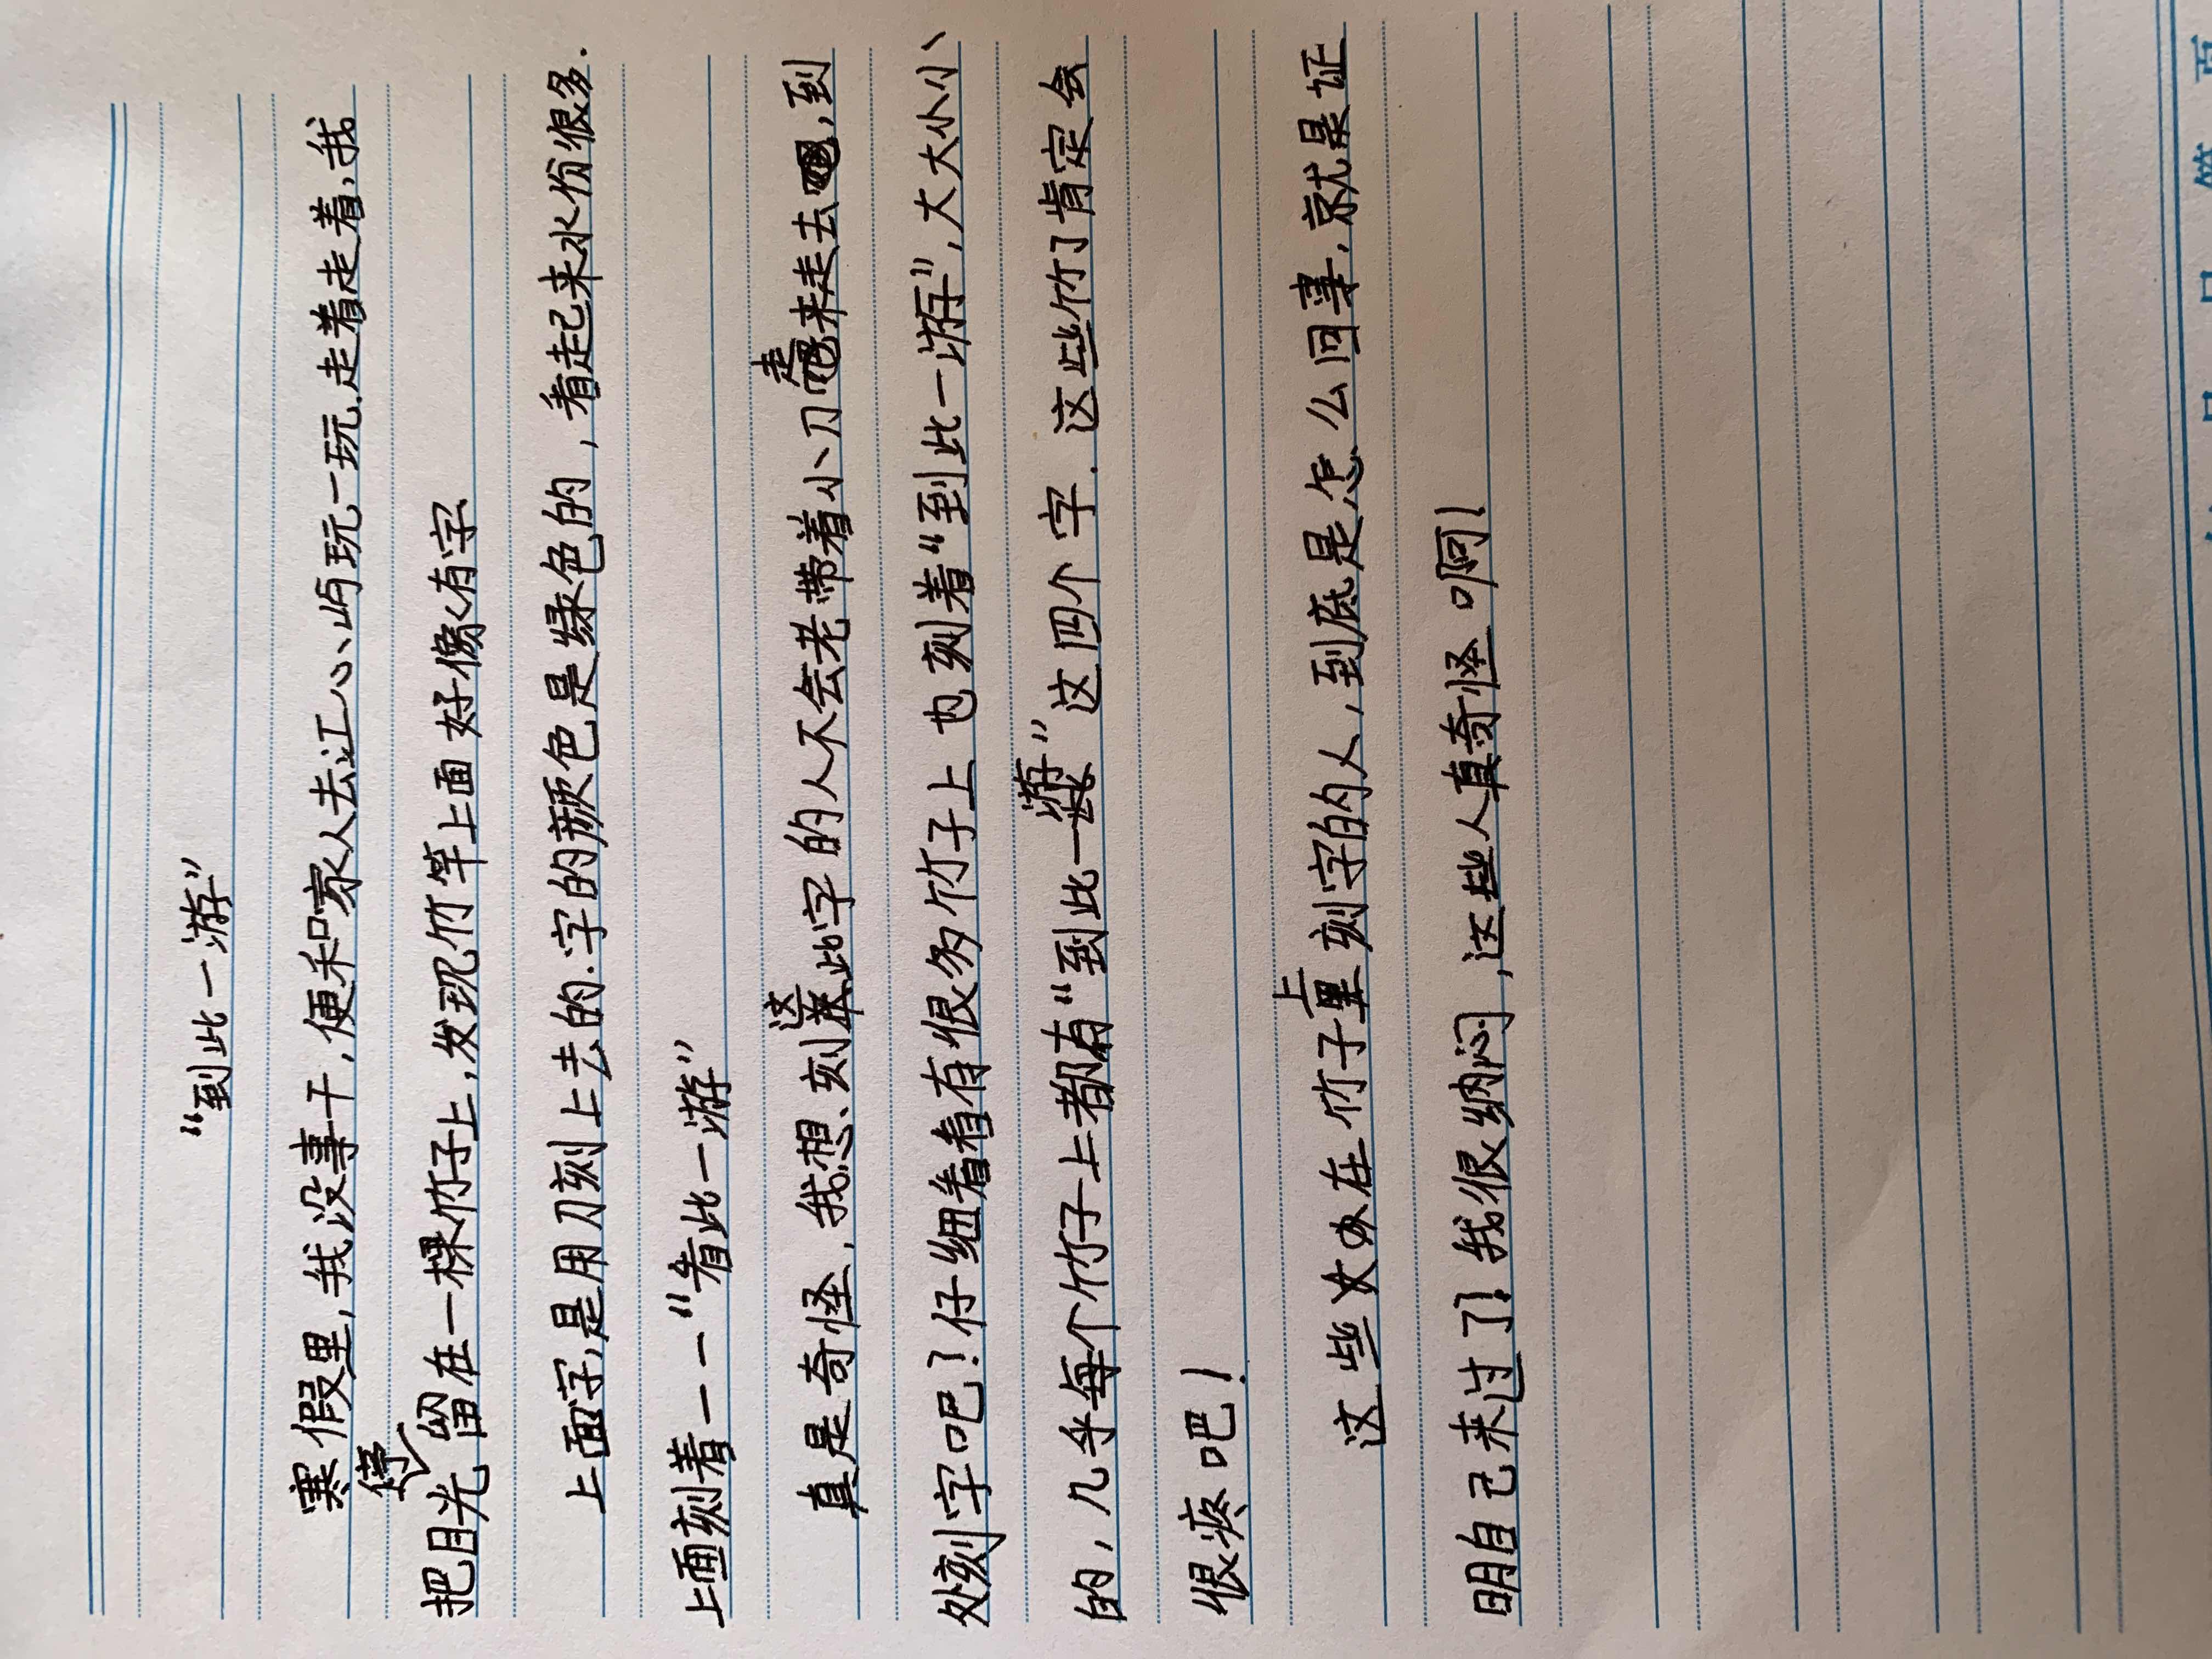 “到此一游”
寒假里,我没事干,便和家人去江心屿玩一玩.走着走着,我
把目光停留在一棵竹子上,发现竹竿上面好像有字
上面字,是用刀刻上去的.字的颜色是绿色的,看起来水份很多.
上面刻着——“看此一游”
真是奇怪,我想、刻这些字的人不会老带着小刀走来走去,到
处刻字吧?仔细看看有很多竹子上也刻着“到此一游”,大大小小
的,几乎每个竹子上都有“到此一游”这四个字.这些竹了肯定会
很疼吧!
这些在竹子上刻字的人,到底是怎么回事,就是证
明自己来过了!我很纳闷,这些人真奇怪啊!